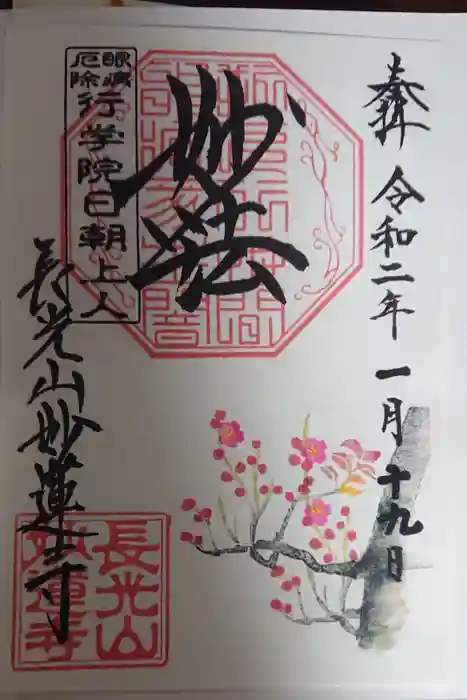 奉拝 令和二年 一月十九日
妙法
眼病
厄除
行学院日朝上人
長光山妙蓮寺
長光山
妙蓮寺